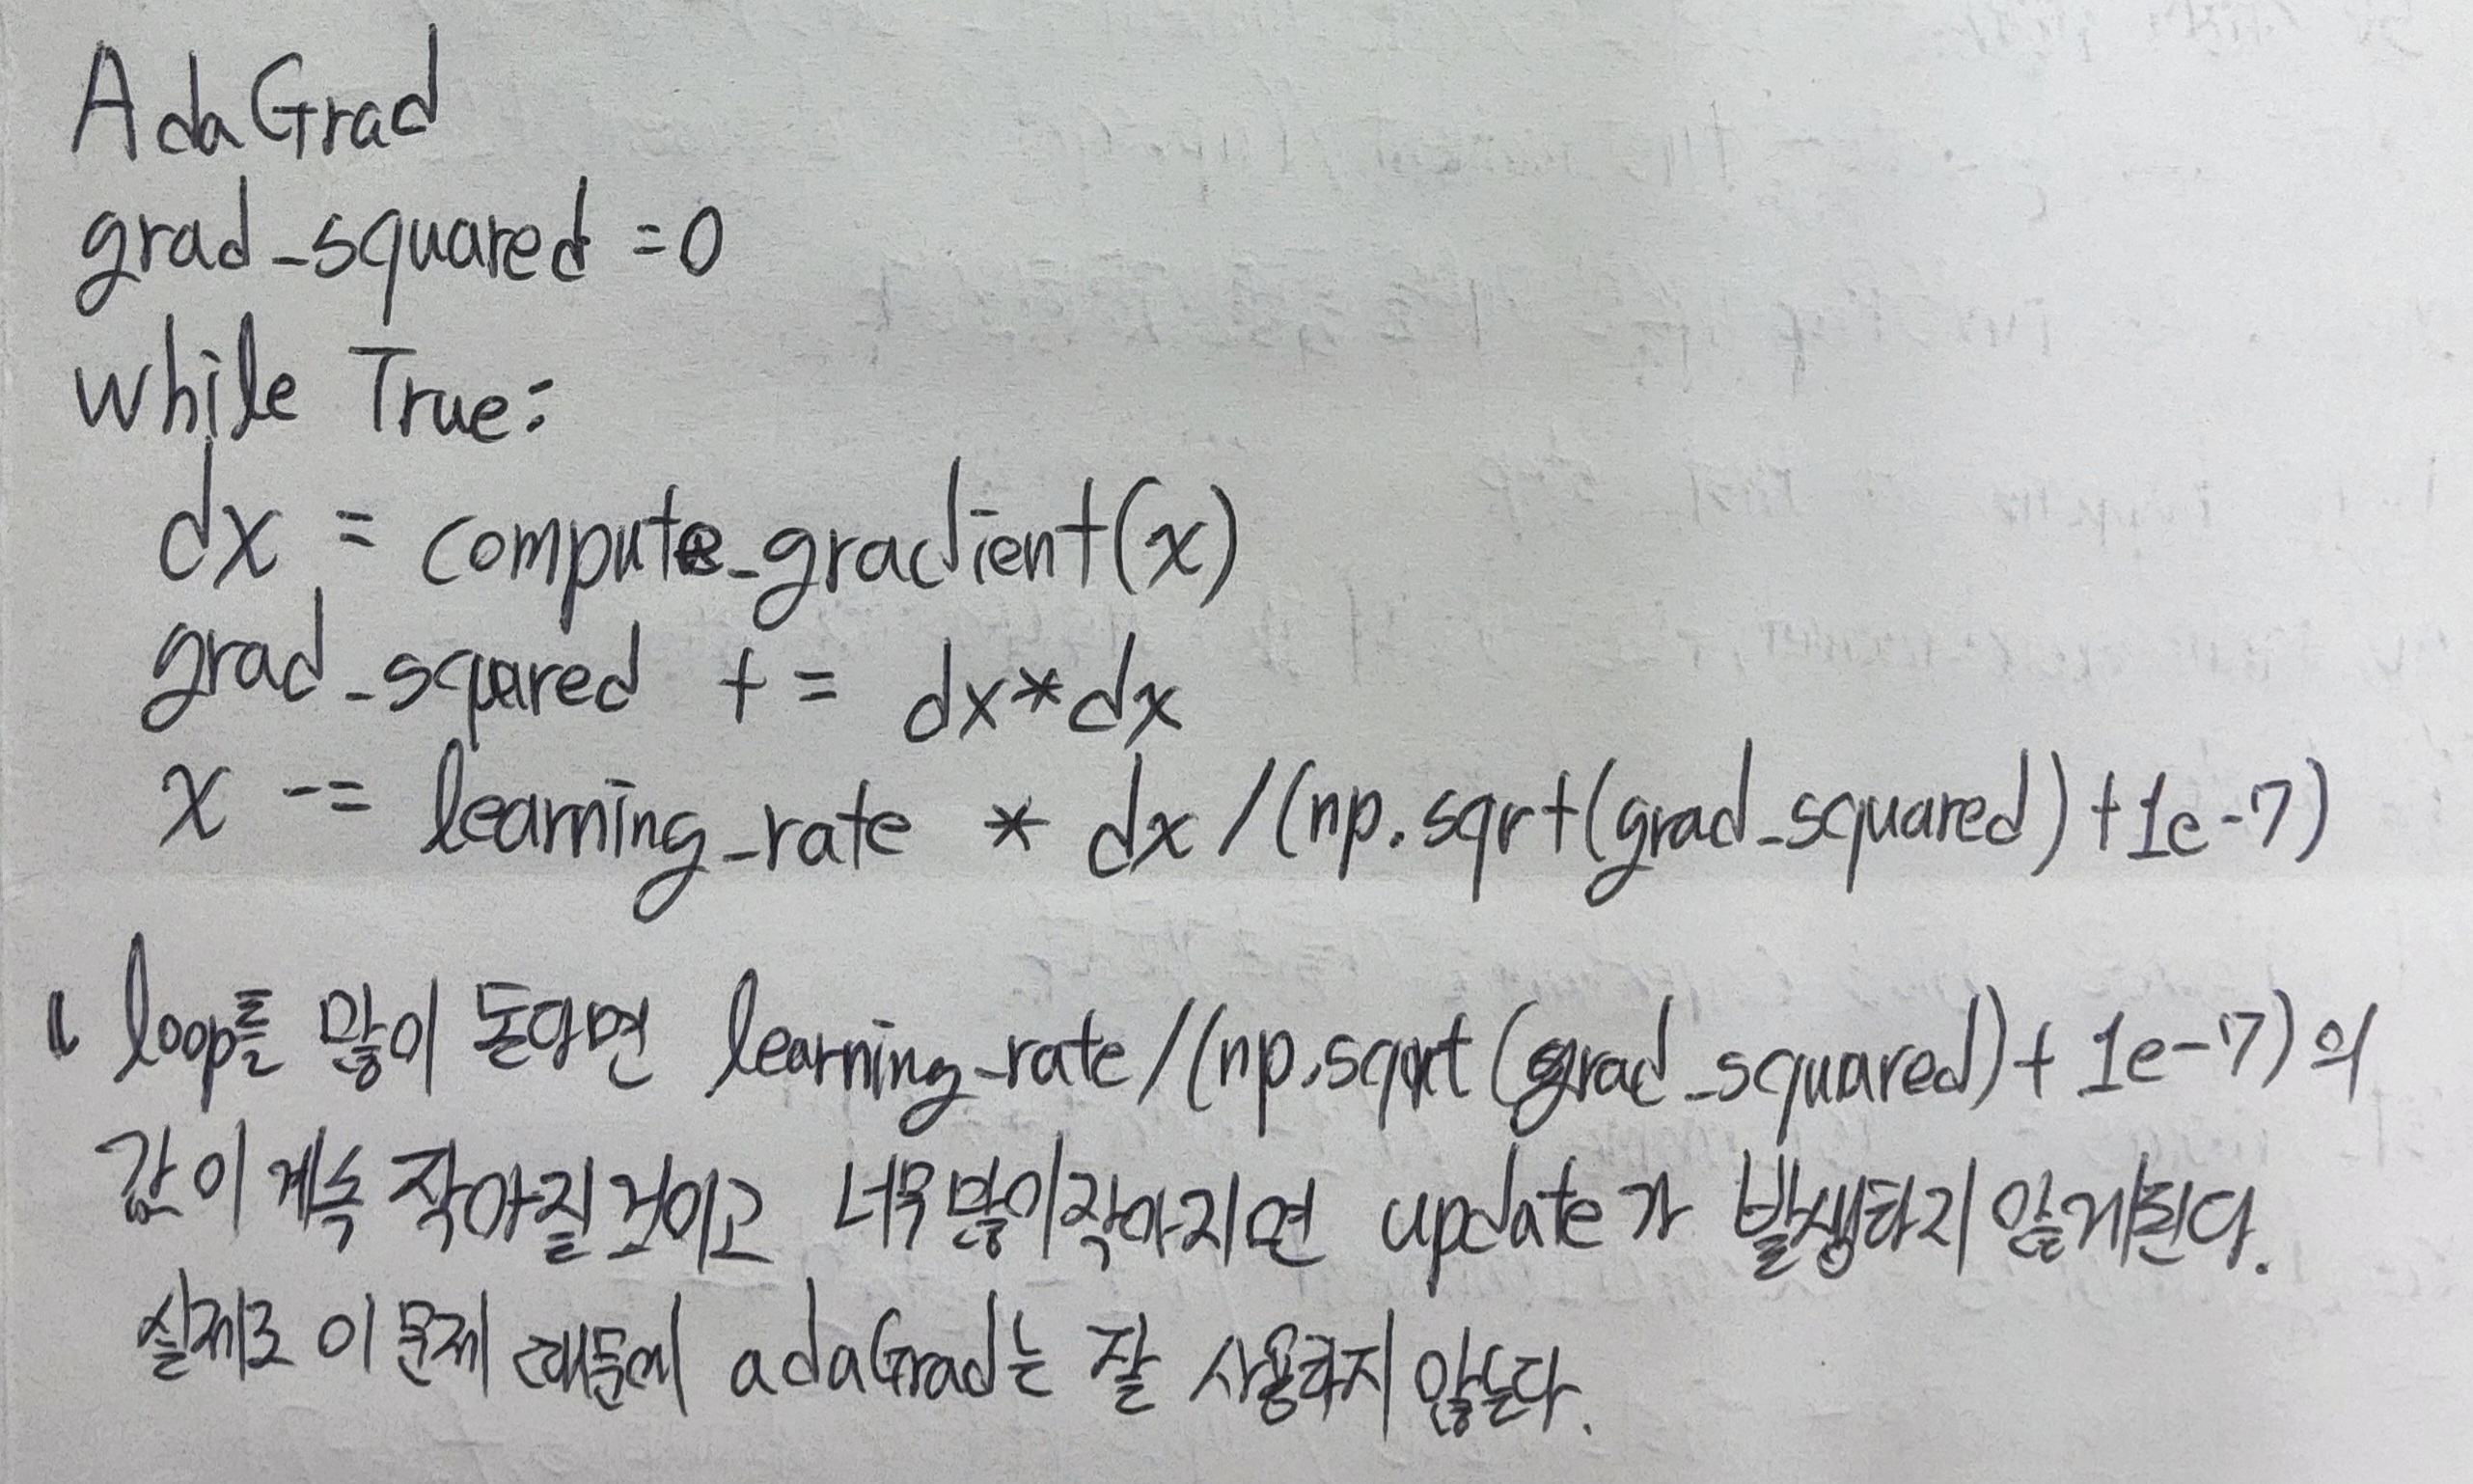 AdaGrad
grad_squared = 0
while True:
dx = compute_gradient(x)
grad_squared += dx*dx
x -= learning_rate * dx /(np.sqrt(grad_squared)+1e-7)
loop를 많이 돌당면 learning_rate/(np.sqrt(grad_squared)+1e-7)의
값이 계속 작아질것이고 너무많이작아지면 update가 발생하지 않게된다.
실제로 이문제 때문에 adaGrad는 잘 사용하지 않는다.